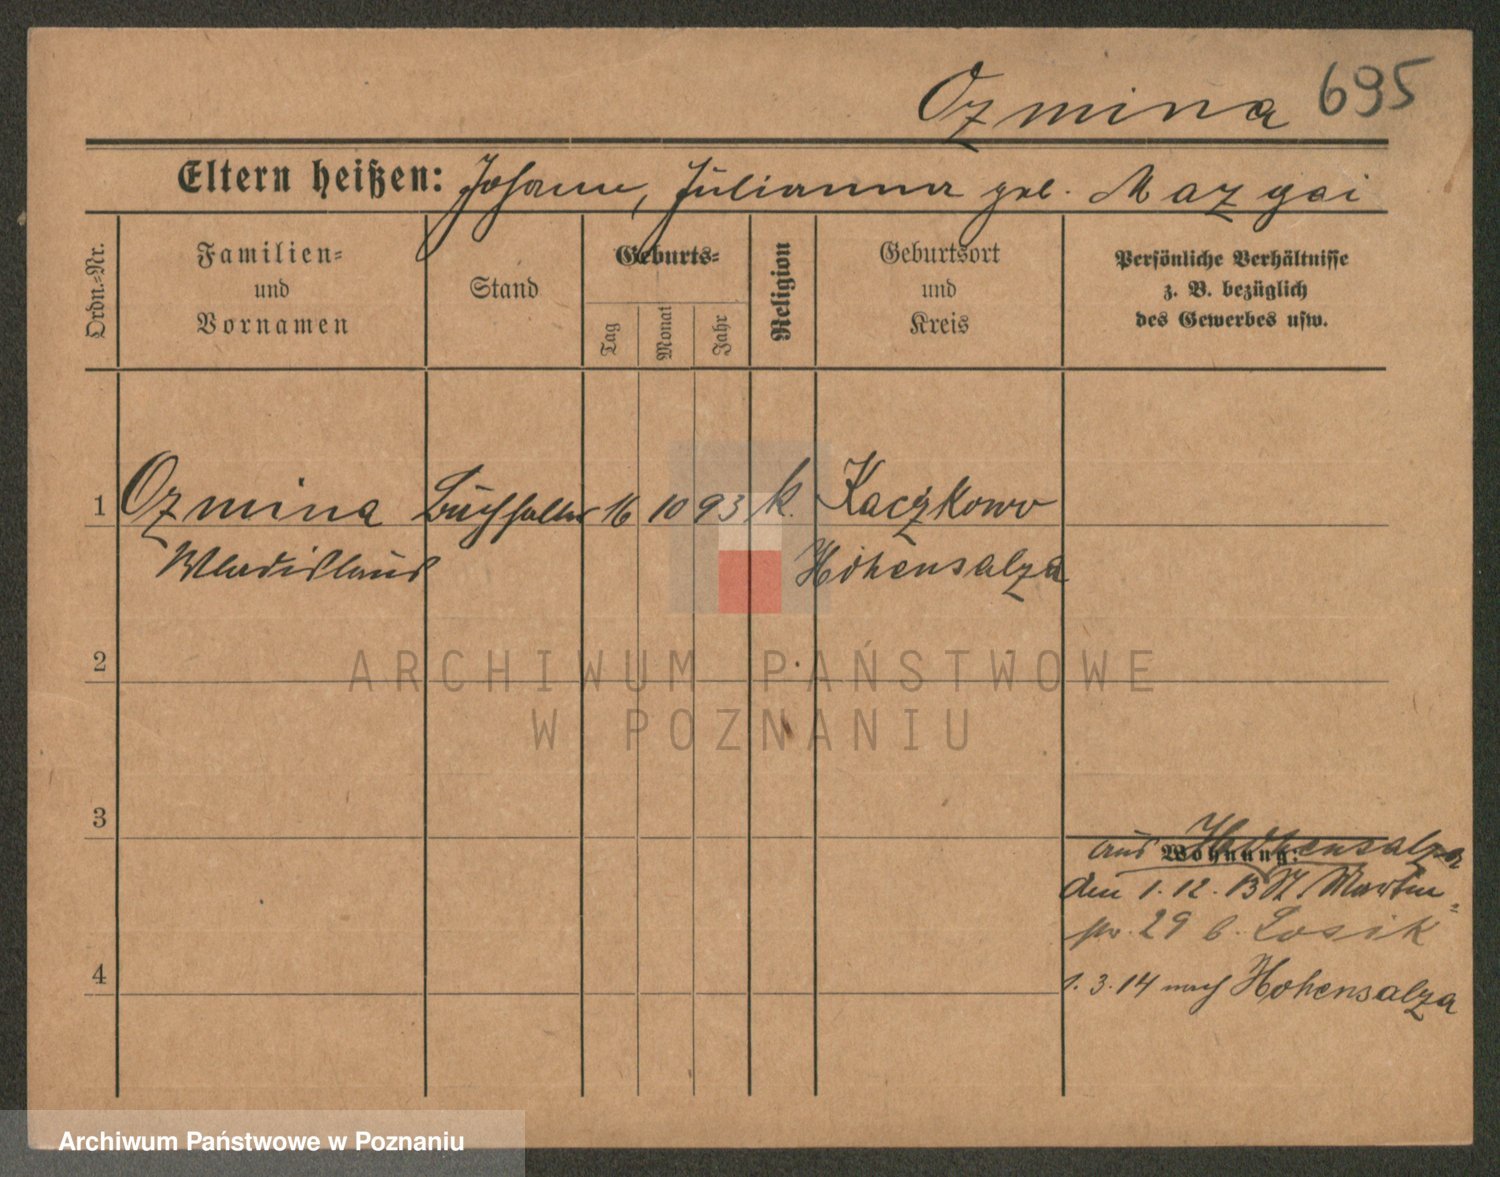 Ozmina 695
Eltern heißen: Johann, Julianna geb. Mazgai
Ordn.-Nr.
Familien-
und
Vornamen
Stand
Geburts-
Tag
Monat
Jahr
Religion
Geburtsort
und
Kreis
Persönliche Verhältnisse
z. B. bezüglich
des Gewerbes usw.
1 Ozmina Buchhalter 16 10 93 k. Kaczkowo
Wladislaus Hohensalza
2
ARCHIWUM PAŃSTWOWE
W POZNANIU
3
Wohnung:
aus Hohensalza
den 1.12.13 St Martin-
str. 29 b. Losik
4
1.3.14 nach Hohensalza
Archiwum Państwowe w Poznaniu